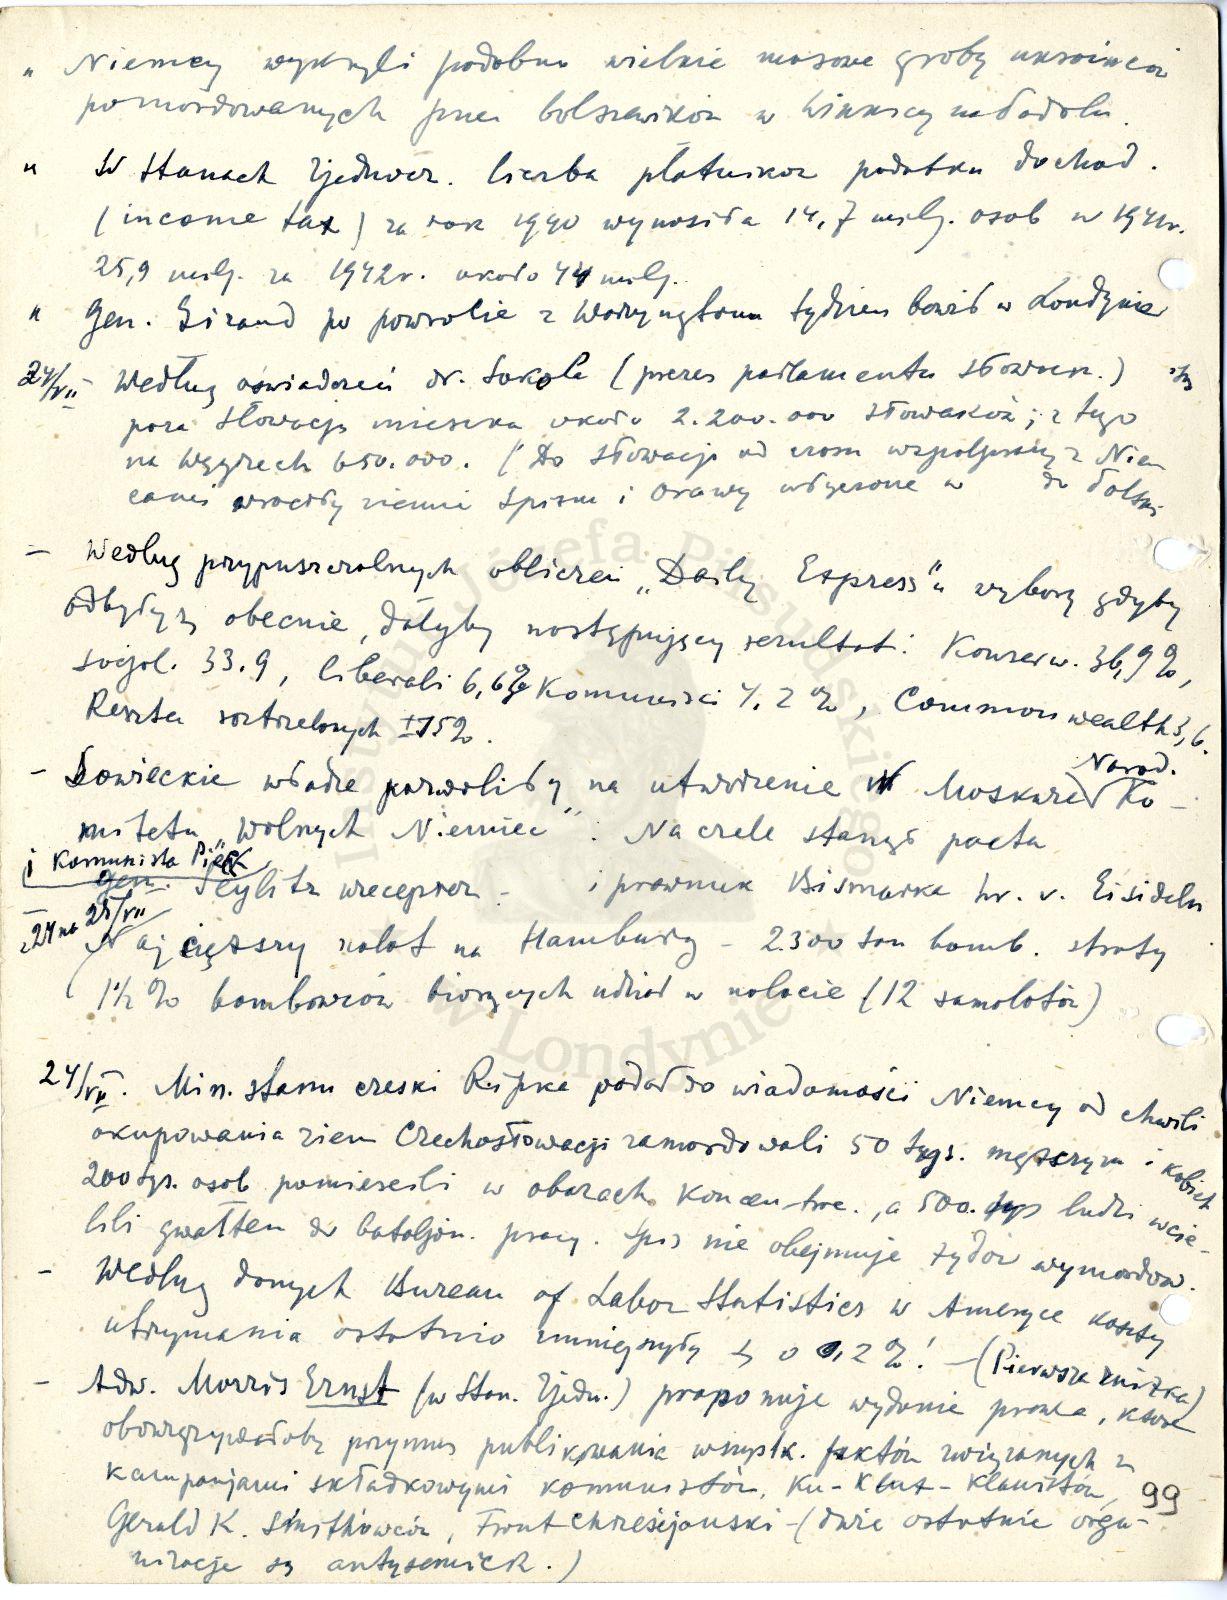 " Niemcy wykryli podobno wielkie masowe groby ukraińców
pomordowanych przez bolszewików w Winnicy na Podolu.
" W Stanach Zjednocz. liczba płatników podatku dochod.
(income tax) za rok 1940 wynosiła 14,7 milj. osob w 1941r.
25,9 milj. za 1942r. około 44 milj.
" Gen. Giraud po powrocie z Waszyngtonu tydzien bawił w Londynie
24/VII Według oświadczeń dr. Sokola (prezes parlamentu słowack.)
poza Słowacją mieszka około 2.200.000 słowaków; z tego
na Węgrzech 650.000. (Do Słowacji od czasu współpracy z Niem
cami wrociły ziemie Spiszu i Orawy włączone w do Polski
- Według przypuszczalnych obliczeń „Daily Express"u wybory gdyby
odbyły się obecnie, dałyby następujący rezultat: Konserw. 36,9%,
socjal. 33.9, liberali 6,6% Komunisci 4.2%, Commonwealth 3,6.
Reszta rozstrzelonych ± 15%.
Narod.
- Sowieckie władze pozwoliły na utworzenie w Moskwie Ko-
mitetu „Wolnych Niemiec". Na czele stanęł poeta
i Komunista Pieck
gen. Seylitz wiceprez. - i prawnuk Bismarka hr. v. Eisideln
z 24 na 25/VII
Najcięższy nalot na Hamburg - 2.300 ton bomb. straty
1½% bombowców biorących udział w nalocie (12 samolotów)
24/VII. Min. stanu czeski Ripka podał do wiadomości Niemcy od chwili
okupowania ziem Czechosłowacji zamordowali 50 tys. mężczyzn i kobiet
200 tys. osob pomiescili w obozach koncentrac., a 500. tys ludzi wcie-
lili gwałtem do bataljon. pracy. Spis nie obejmuje żydów wymordow.
- Według danych Bureau of Labor Statistics w Ameryce koszty
utrzymania ostatnio zmniejszyły się o 0,2%! - (Pierwsza zniżka)
- Adw. Morris Ernst (w Stan. Zjedn.) proponuje wydanie prawa, ktore
obowiązywałoby przymus publikowania wszystk. faktów związanych z
kampanjami składkowymi komunistów, Ku-Klux-Klanistów,
Gerald K. Smithowców, Front Chrześcijanski - (dwie ostatnie orga-
nizacje są antysemick.)
99
Instytut Józefa Piłsudskiego
w Londynie